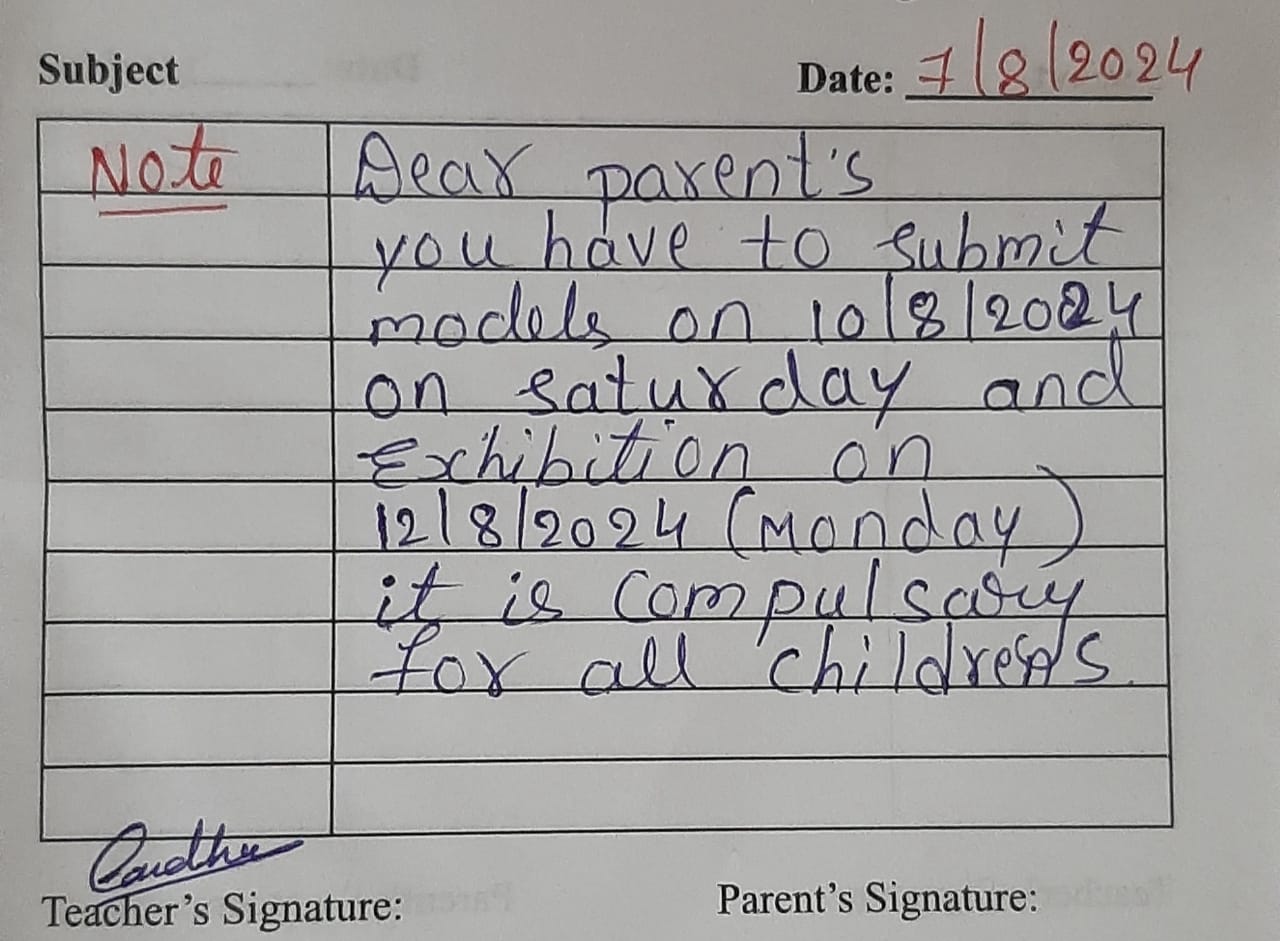 Subject
Date: 7/8/2024
Note
Dear parent's
you have to submit
models on 10/8/2024
on saturday and
Exhibition on
12/8/2024 (Monday)
it is compulsary
for all childrens.
Teacher's Signature:
Parent's Signature: